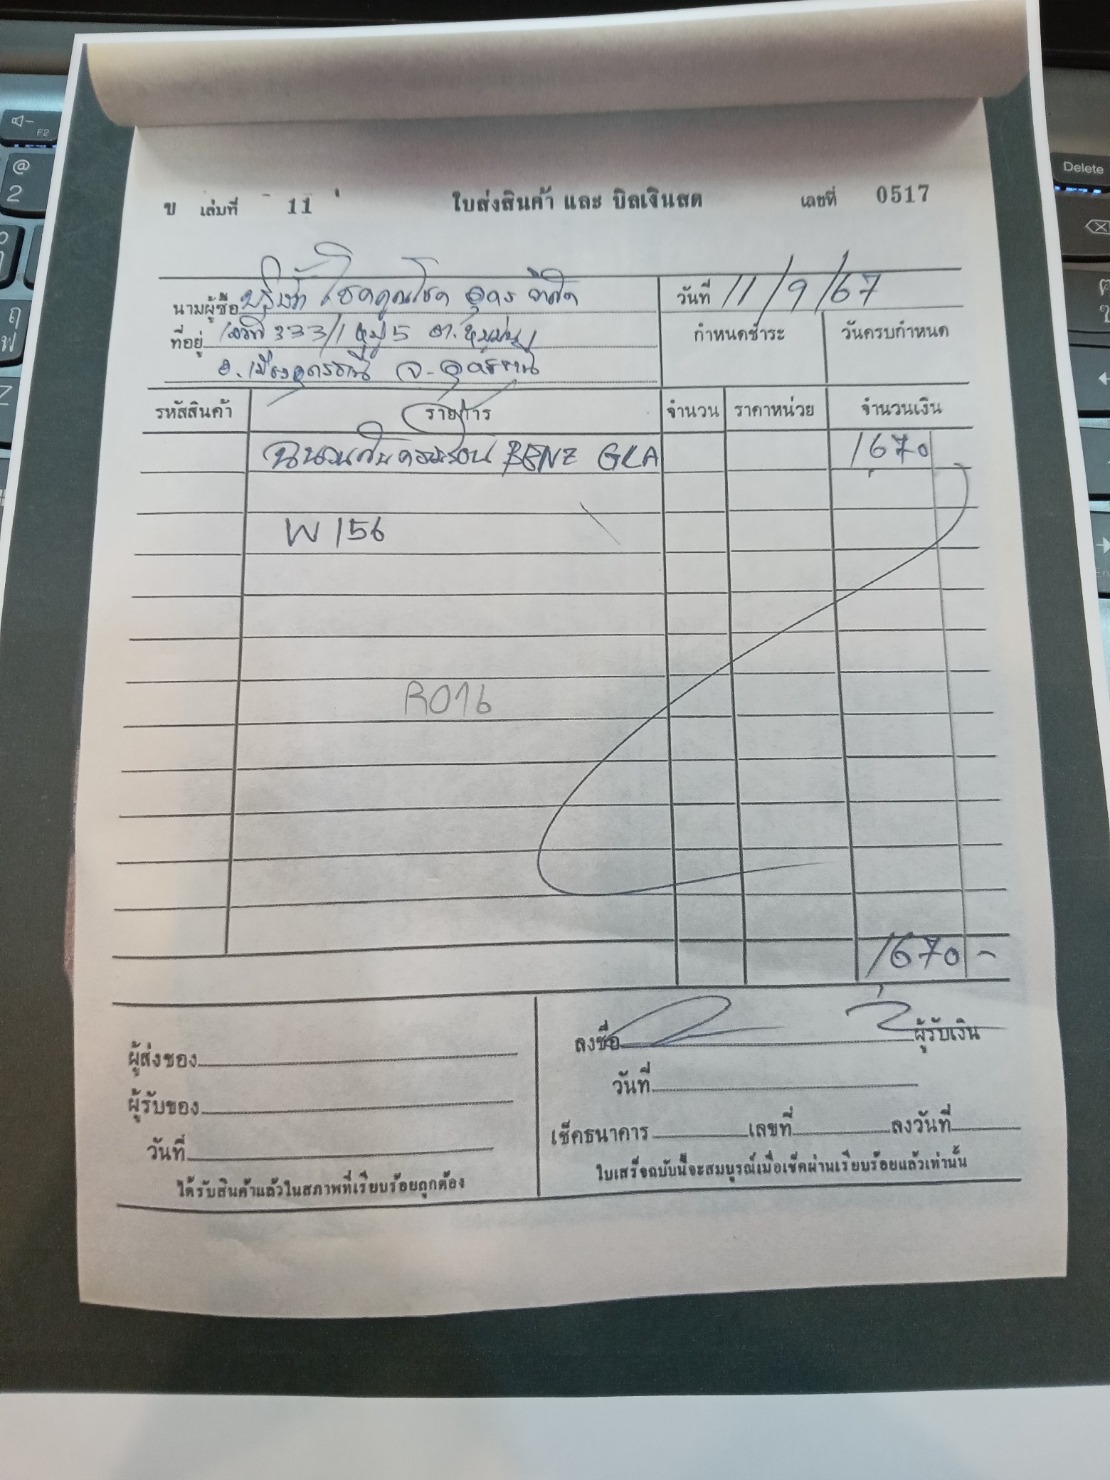 ข เล่มที่ 11 ใบส่งสินค้า และ บิลเงินสด เลขที่ 0517
นามผู้ซื้อ บริษัท โชคคูณโชค อุดร จำกัด วันที่ 11/9/67
ที่อยู่ เลขที่ 333/1 หมู่ 5 ต. กำหนดชำระ วันครบกำหนด
อ.เมืองอุดรธานี จ.อุดรธานี
รหัสสินค้า รายการ จำนวน ราคาหน่วย จำนวนเงิน
ฉนวนกันความร้อน BENZ GLA 1670
W 156
R016
1670 -
ลงชื่อ ผู้รับเงิน
ผู้ส่งของ
วันที่
ผู้รับของ
เช็คธนาคาร เลขที่ ลงวันที่
วันที่
ใบเสร็จฉบับนี้จะสมบูรณ์เมื่อเช็คผ่านเรียบร้อยแล้วเท่านั้น
ได้รับสินค้าแล้วในสภาพที่เรียบร้อยถูกต้อง
F2
@
2
Delete